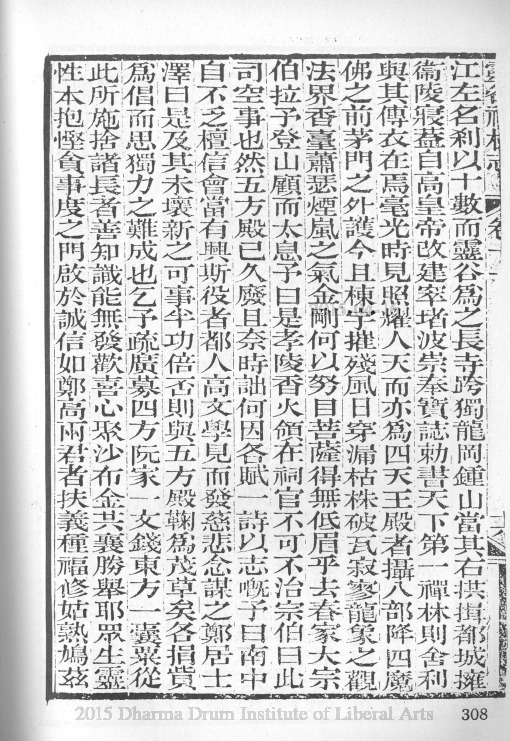 江左名刹以十數而靈谷為之長寺跨獨龍岡鍾山當其右拱揖都城擁
衞陵寢葢自高皇帝改建窣堵波崇奉寳誌勅書天下第一禪林則舍利
與其傳衣在焉毫光時見照耀人天而亦為四天王殿者攝八部降四魔
佛之前茅門之外護今且棟宇摧殘風日穿漏枯株破瓦寂寥龍象之觀
法界香臺蕭瑟煙嵐之氣金剛何以努目菩薩得無低眉乎去春家大宗
伯拉予登山顧而太息予曰是孝陵香火領在祠官不可不治宗伯曰此
司空事也然五方殿已久廢且奈時詘何因各賦一詩以志嘅予曰南中
自不乏檀信會當有興斯役者都人高文學見而發慈悲念謀之鄭居士
澤曰是及其未壞新之可事半功倍否則與五方殿鞠為茂草矣各捐貲
為倡而思獨力之難成也乞予疏廣募四方阮家一文錢東方一囊粟從
此所施捨諸長者善知識能無發歡喜心聚沙布金共襄勝舉耶眾生靈
性本抱慳貪事度之門啟於誠信如鄭高兩君者扶義種福修姑孰鳩茲
2015 Dharma Drum Institute of Liberal Arts
308